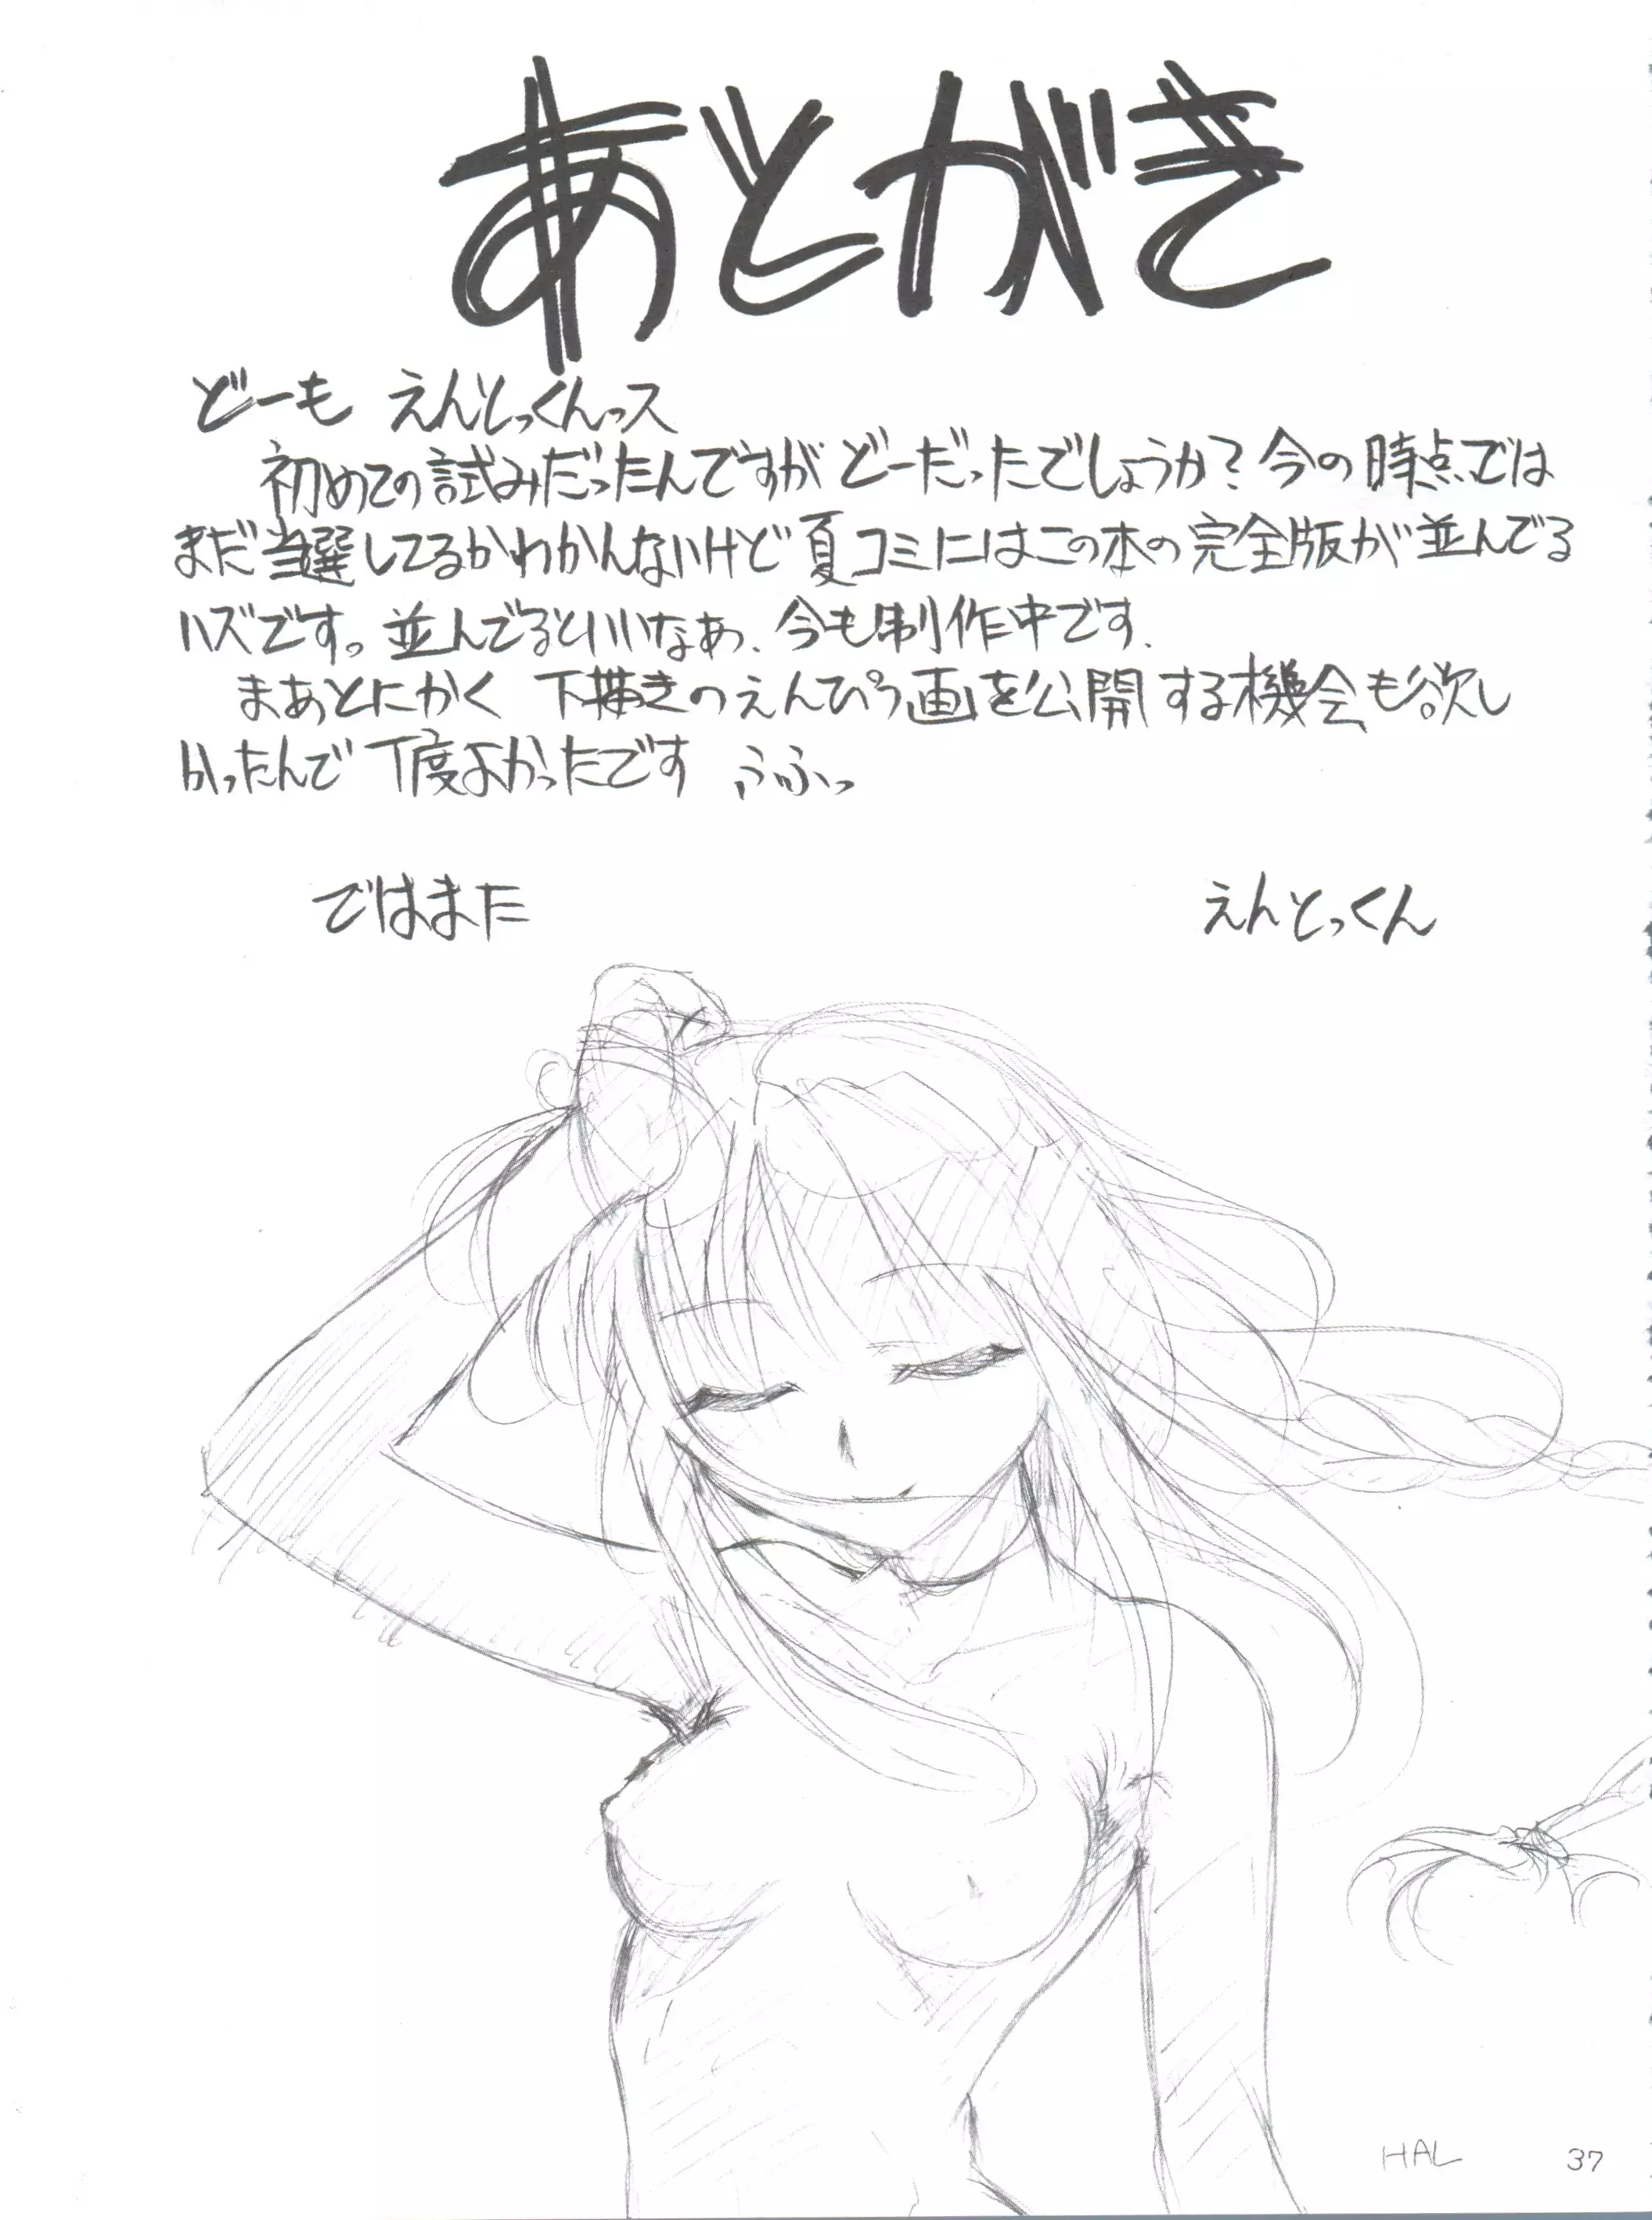 あとがき
どーも えんとっくんっス
初めての試みだったんですが どーだったでしょうか？ 今の時点では
まだ当選してるかわかんないけど 夏コミにはこの本の完全版が並んでる
ハズです。並んでるといいなあ、今も制作中です、
まあとにかく 下描きのえんぴつ画を公開する機会も欲し
かったんで 丁度よかったです うふふっ
ではまた
えんとっくん
HAL
37